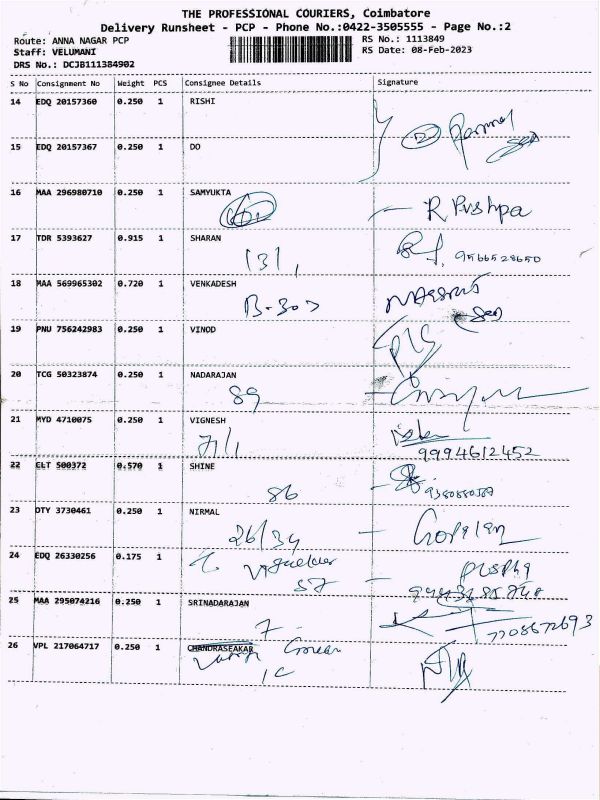 THE PROFESSIONAL COURIERS, Coimbatore
Delivery Runsheet - PCP - Phone No.:0422-3505555 - Page No.:2
Route: ANNA NAGAR PCP
RS No.: 1113849
Staff: VELUMANI
RS Date: 08-Feb-2023
DRS No.: DCJB111384902
S No Consignment No Weight PCS Consignee Details Signature
14 EDQ 20157360 0.250 1 RISHI
15 EDQ 20157367 0.250 1 DO
16 MAA 296980710 0.250 1 SAMYUKTA
R Pushpa
17 TDR 5393627 0.915 1 SHARAN
131, 9566528650
18 MAA 569965302 0.720 1 VENKADESH
B-303
19 PNU 756242983 0.250 1 VINOD
20 TCG 50323874 0.250 1 NADARAJAN
89
21 MYD 4710075 0.250 1 VIGNESH
71/1
9994612452
22 CLT 500372 0.570 1 SHINE
86
23 OTY 3730461 0.250 1 NIRMAL
26/34
24 EDQ 26330256 0.175 1
57
25 MAA 295074216 0.250 1 SRINADARAJAN
7 7708672693
26 VPL 217064717 0.250 1 CHANDRASEAKAR
1C